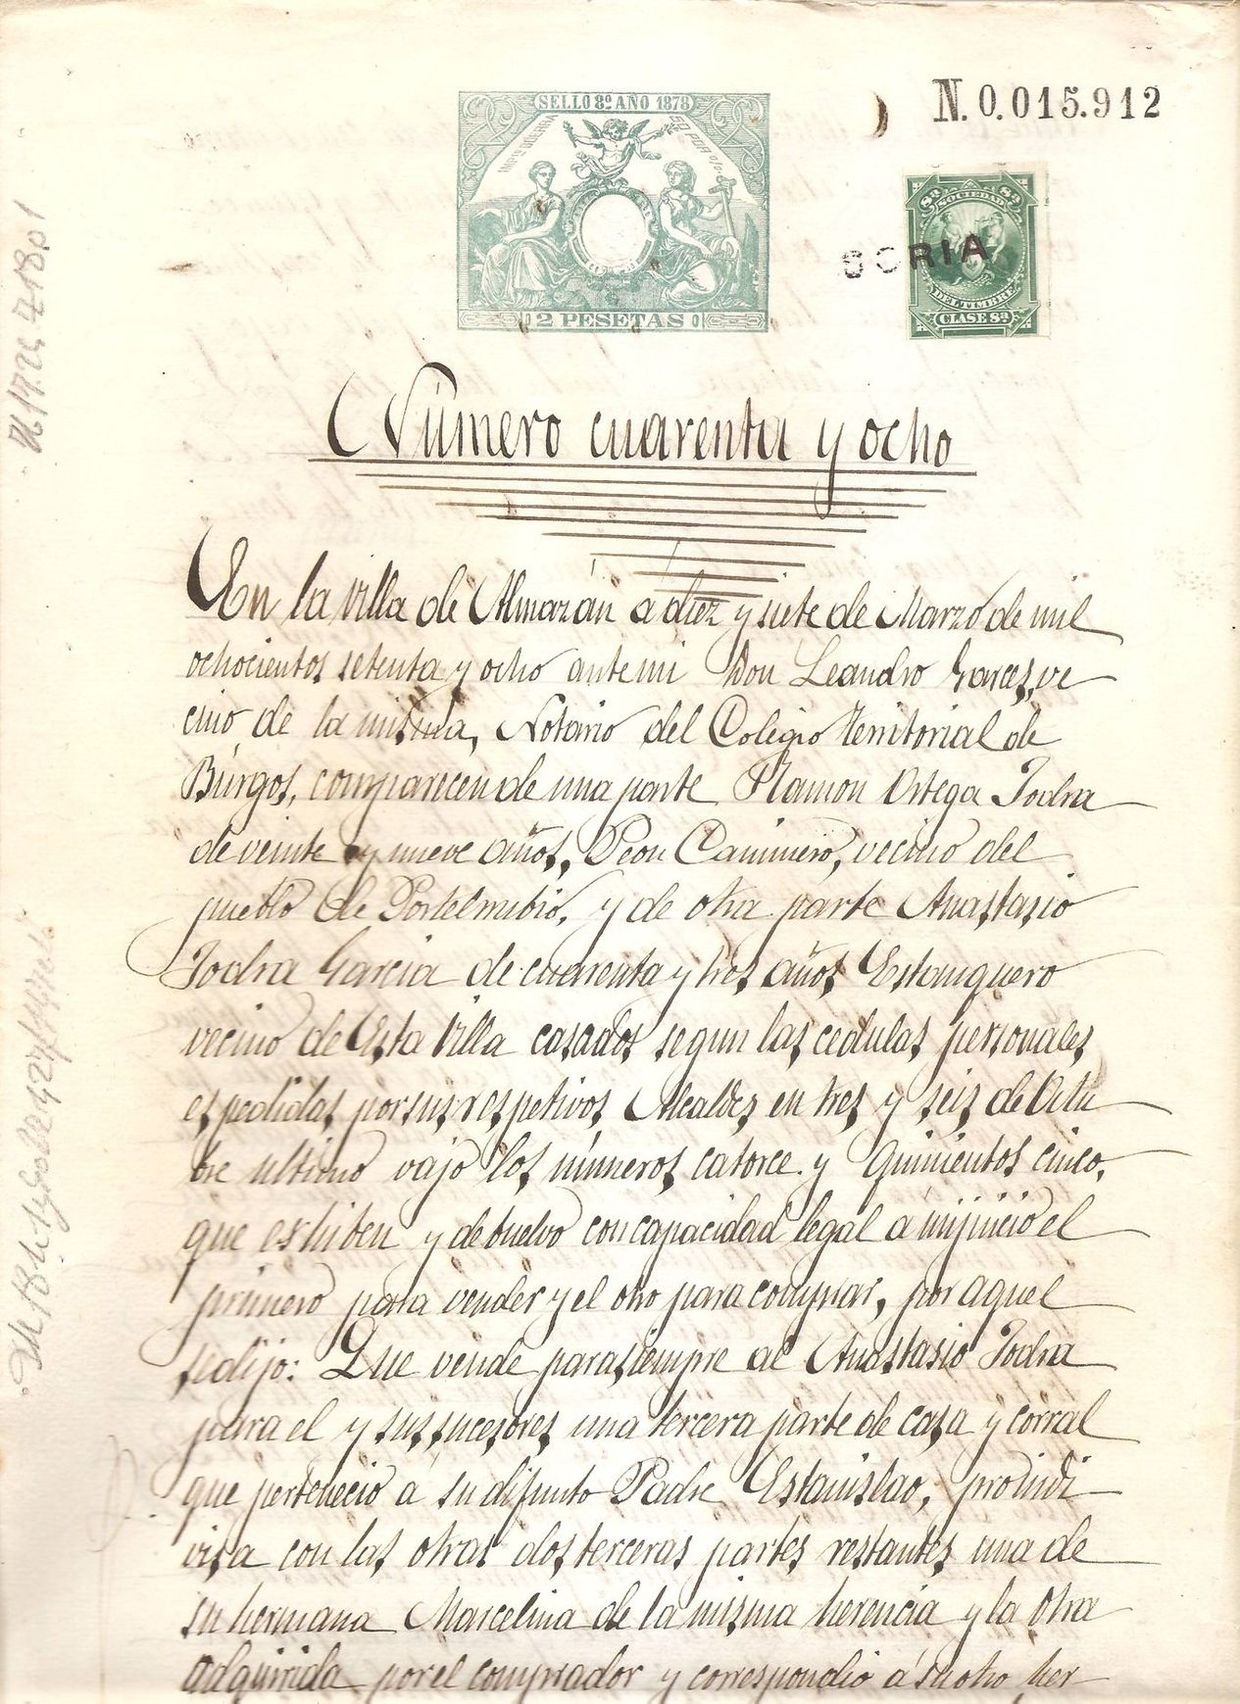 N. 0.015.912
SELLO 8º AÑO 1878
2 PESETAS
8ª 8ª
SOCIEDAD
DEL TIMBRE
CLASE 8ª
SORIA
Número cuarenta y ocho
En la villa de Almazán a diez y siete de Marzo de mil
ochocientos setenta y ocho ante mi Don Leandro Garces, ve
cino de la misma, Notario del Colegio territorial de
Búrgos, comparecen de una parte Ramon Ortega Jodra
de veinte y nueve años, Peon Caminero, vecino del
pueblo de Portelrubio, y de otra parte Anastasio
Jodra Garcia de cuarenta y tres años Estanquero
vecino de Esta Villa casados segun las cedulas personales
espedidas por sus respetivos Alcaldes en tres y seis de Octu
bre ultimo vajo los números catorce y quinientos cinco,
que eshiben y debuelvo con capacidad legal a mi juicio el
primero para vender y el otro para comprar, por aquel
se dijo: Que vende para siempre al Anastasio Jodra
para el y sus sucesores una tercera parte de casa y corral
que perteneció á su difunto Padre Estanislao, proindi
visa con las otras dos terceras partes restantes una de
su hermana Marcelina de la misma herencia y la otra
adquirida por el comprador y correspondio á su otro her